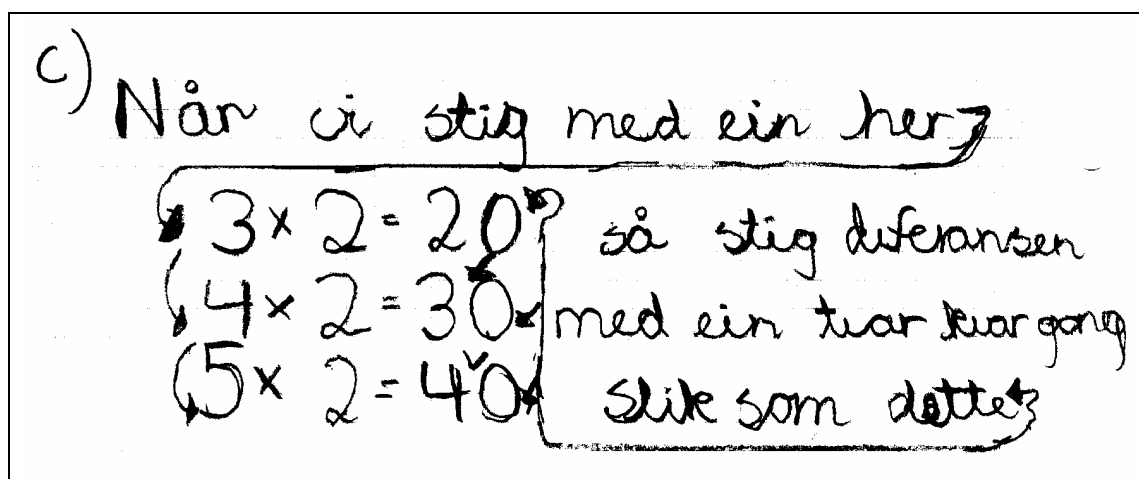 c)
Når vi stig med ein her
3 × 2 = 20 så stig diferansen
4 × 2 = 30 med ein tvar kvar gong
5 × 2 = 40 slik som dette